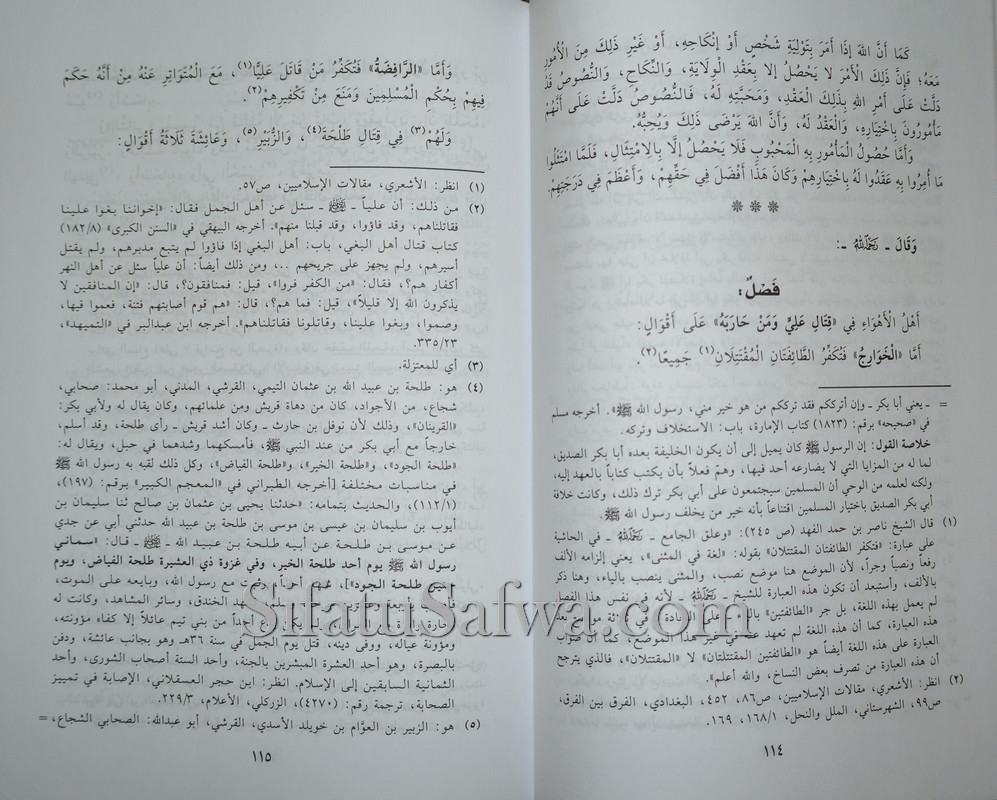 كَمَا أَنَّ اللهَ إِذَا أَمَرَ بِتَوْلِيَةِ شَخْصٍ أَوْ إِنْكَاحِهِ، أَوْ غَيْرِ ذَلِكَ مِنَ الْأُمُورِ
مَعَهُ؛ فَإِنَّ ذَلِكَ الْأَمْرَ لَا يَحْصُلُ إلا بِعَقْدِ الْوِلَايَةِ، وَالنِّكَاحِ، وَالنُّصُوصُ قَدْ
دَلَّتْ عَلَى أَمْرِ اللهِ بِذَلِكَ الْعَقْدِ، وَمَحَبَّتِهِ لَهُ، فَالنُّصُوصُ دَلَّتْ عَلَى أَنَّهُمْ
مَأْمُورُونَ بِاخْتِيَارِهِ، وَالْعَقْدُ لَهُ، وَأَنَّ اللهَ يَرْضَى ذَلِكَ وَيُحِبُّهُ.
وَأَمَّا حُصُولُ الْمَأْمُورِ بِهِ الْمَحْبُوبِ فَلَا يَحْصُلُ إلَّا بِالِامْتِثَالِ، فَلَمَّا امْتَثَلُوا
مَا أُمِرُوا بِهِ عَقَدُوا لَهُ بِاخْتِيَارِهِمْ وَكَانَ هَذَا أَفْضَلَ فِي حَقِّهِمْ، وَأَعْظَمَ فِي دَرَجَتِهِمْ.
* * *
وَقَالَ ـ رَحِمَهُ اللهُ ـ:
فَصْلٌ:
أَهْلُ الْأَهْوَاءِ فِي «قِتَالِ عَلِيٍّ وَمَنْ حَارَبَهُ» عَلَى أَقْوَالٍ:
أَمَّا «الْخَوَارِجُ» فَتُكَفِّرُ الطَّائِفَتَانِ الْمُقْتَتِلَانِ(١) جَمِيعًا(٢).
= ـ يعني أبا بكر ـ وإن أترككم فقد ترككم من هو خير مني، رسول الله ﷺ». أخرجه مسلم
في «صحيحه» برقم: (١٨٢٣) كتاب الإمارة، باب: الاستخلاف وتركه.
خلاصة القول: إن الرسول ﷺ كان يميل إلى أن يكون الخليفة بعده أبا بكر الصديق،
لما له من المزايا التي لا يضارعه أحد فيها، وهمّ فعلاً بأن يكتب كتاباً بالعهد إليه،
ولكنه لعلمه من الوحي أن المسلمين سيجتمعون على أبي بكر ترك ذلك، وكانت خلافة
أبي بكر الصديق باختيار المسلمين اقتناعاً بأنه خير من يخلف رسول الله ﷺ.
(١) قال الشيخ ناصر بن حمد الفهد (ص ٢٤٥): «وعلق الجامع ـ رحمه الله ـ في الحاشية
على عبارة: «فتكفر الطائفتان المقتتلان» بقوله: «لغة في المثنى»، يعني إلزامه الألف
رفعاً ونصباً وجراً، لأن الموضع هنا موضع نصب، والمثنى ينصب بالياء، وهنا ذكر
بالألف، وأستبعد أن تكون هذه العبارة للشيخ ـ رحمه الله ـ لأنه في نفس هذا الفصل
لم يعمل بهذه اللغة، بل جر «الطائفتين» بالياء
هذه العبارة، كما أن هذه اللغة لم تعهد عنه في غير هذا الموضع،
العبارة على هذه اللغة أيضاً هو «الطائفتين المقتتلتان» لا «المقتتلان»، فالذي يترجح
أن هذه العبارة من تصرف بعض النساخ، والله أعلم».
(٢) انظر: الأشعري، مقالات الإسلاميين، ص٨٦، ٤٥٢، البغدادي، الفرق بين الفرق،
ص٩٩، الشهرستاني، الملل والنحل، ١٦٨/١، ١٦٩.
١١٤
وَأَمَّا «الرَّافِضَةُ» فَتُكَفِّرُ مَنْ قَاتَلَ عَلِيًّا(١)، مَعَ الْمُتَوَاتِرِ عَنْهُ مِنْ أَنَّهُ حَكَمَ
فِيهِمْ بِحُكْمِ الْمُسْلِمِينَ وَمَنَعَ مِنْ تَكْفِيرِهِمْ(٢).
وَلَهُمْ(٣) فِي قِتَالِ طَلْحَةَ(٤)، وَالزُّبَيْرِ(٥)، وَعَائِشَةَ ثَلَاثَةُ أَقْوَالٍ:
(١) انظر: الأشعري، مقالات الإسلاميين، ص٥٧.
(٢) من ذلك: أن علياً ـ رضي الله عنه ـ سئل عن أهل الجمل فقال: «إخواننا بغوا علينا
فقاتلناهم، وقد فاؤوا، وقد قبلنا منهم». أخرجه البيهقي في «السنن الكبرى» (١٨٢/٨)
كتاب قتال أهل البغي، باب: أهل البغي إذا فاؤوا لم يتبع مدبرهم، ولم يقتل
أسيرهم، ولم يجهز على جريحهم ..، ومن ذلك أيضاً: أن علياً سئل عن أهل النهر
أكفار هم؟، فقال: «من الكفر فروا»، قيل: فمنافقون؟، قال: «إن المنافقين لا
يذكرون الله إلا قليلاً»، قيل: فما هم؟، قال: «هم قوم أصابتهم فتنة، فعموا فيها،
وصموا، وبغوا علينا، وقاتلونا فقاتلناهم». أخرجه ابن عبدالبر في «التمهيد»،
٣٣٥/٢٣.
(٣) أي للمعتزلة.
(٤) هو: طلحة بن عبيد الله بن عثمان التيمي، القرشي، المدني، أبو محمد: صحابي،
شجاع، من الأجواد، كان من دهاة قريش ومن علمائهم، وكان يقال له ولأبي بكر:
«القرينان»، وذلك لأن نوفل بن حارث ـ وكان أشد قريش ـ رأى طلحة، وقد أسلم،
خارجاً مع أبي بكر من عند النبي ﷺ، فأمسكهما وشدهما في حبل، ويقال له:
«طلحة الجود»، و«طلحة الخير»، و«طلحة الفياض»، وكل ذلك لقبه به رسول الله ﷺ
في مناسبات مختلفة [أخرجه الطبراني في «المعجم الكبير» برقم: (١٩٧)،
(١١٢/١)، والحديث بتمامه: «حدثنا يحيى بن عثمان بن صالح ثنا سليمان بن
أيوب بن سليمان بن عيسى بن موسى بن طلحة بن عبيد الله حدثني أبي عن جدي
عن موسى بن طلحة عن أبيه طلحة بن عبيد الله ـ رضي الله عنه ـ قال: «سماني
رسول الله ﷺ يوم أحد طلحة الخير، وفي غزوة ذي العشيرة طلحة الفياض، ويوم
حنين طلحة الجود»]، مع رسول الله، وبايعه على الموت،
الخندق، وسائر المشاهد، وكانت له
أحداً من بني تيم عائلاً إلا كفاه مؤونته،
ومؤونة عياله، ووفى دينه، قتل يوم الجمل في سنة ٣٦هـ وهو بجانب عائشة، ودفن
بالبصرة، وهو أحد العشرة المبشرين بالجنة، وأحد الستة أصحاب الشورى، وأحد
الثمانية السابقين إلى الإسلام. انظر: ابن حجر العسقلاني، الإصابة في تمييز
الصحابة، ترجمة رقم: (٤٢٧٠)، الزركلي، الأعلام، ٢٢٩/٣.
(٥) هو: الزبير بن العوَّام بن خويلد الأسدي، القرشي، أبو عبدالله: الصحابي الشجاع، =
١١٥
SifatuSafwa.com